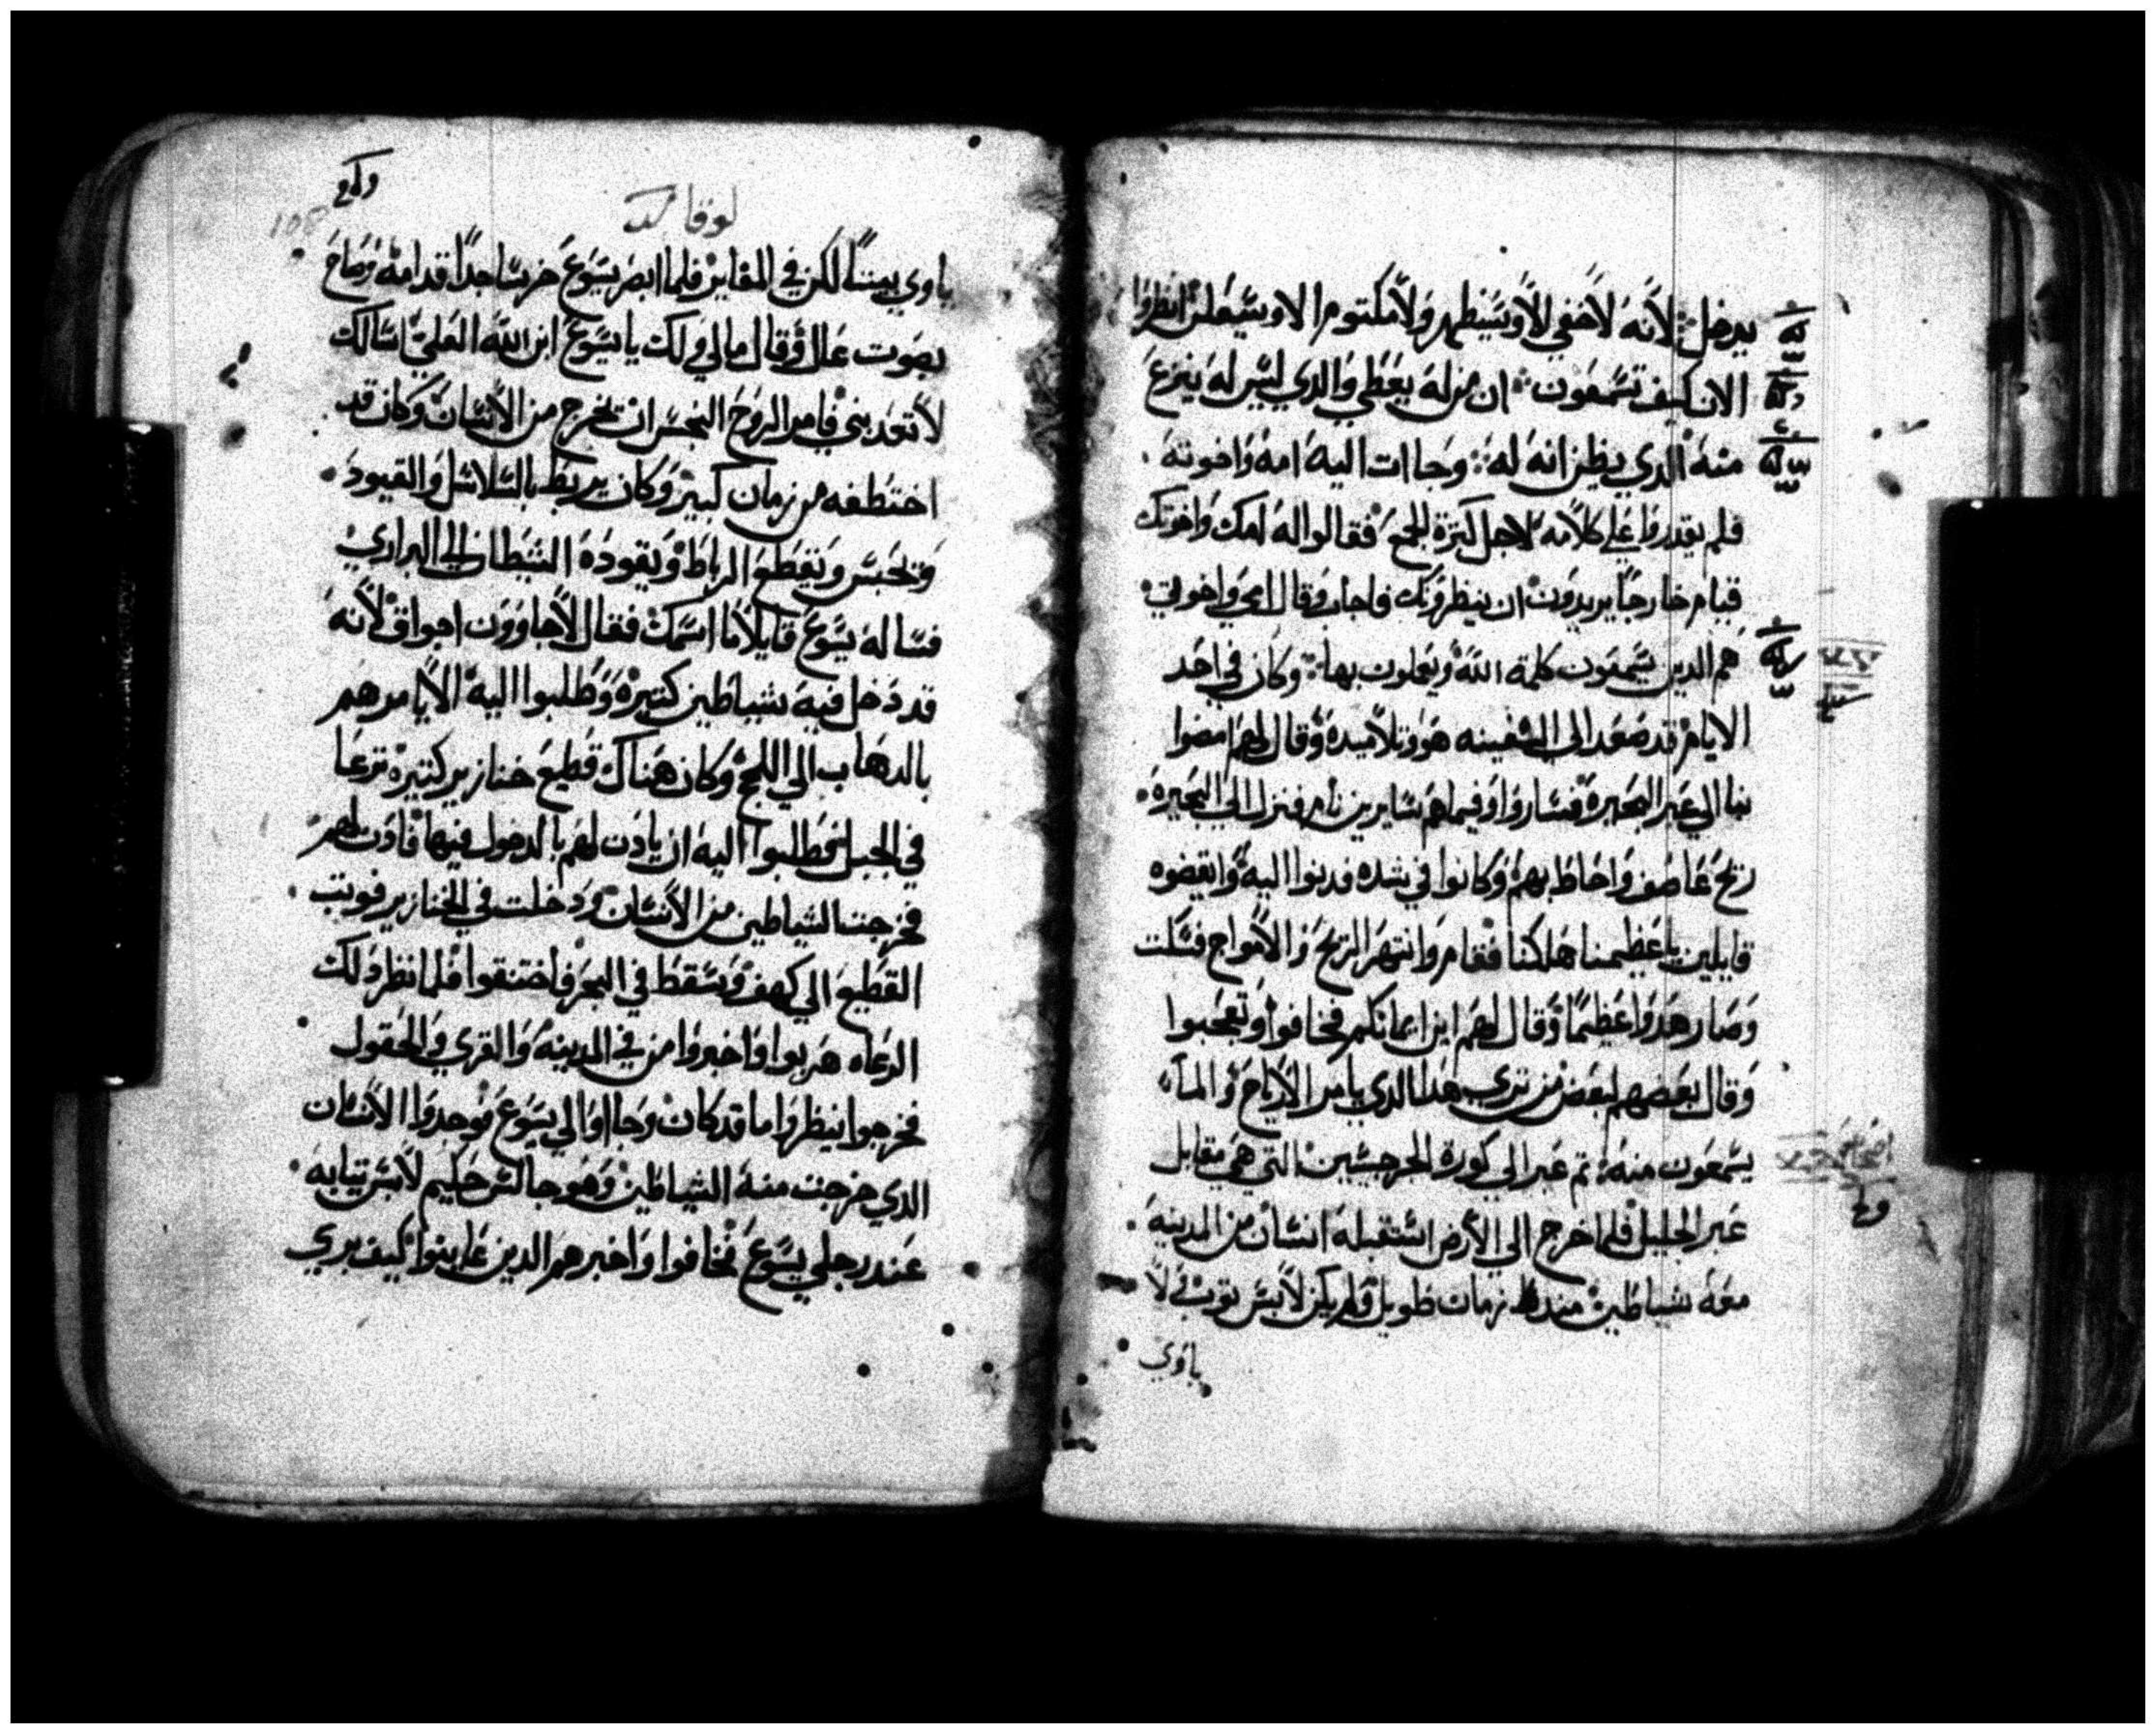 يدخل لانه لا خفي الا وسيظهر ولا مكتوم الا وسيعلن انظروا
الان كيف تسمعون ان من له يعطي والدي ليس له ينزع
منه الدي يظن انه له وجاات اليه امه واخوته
فلم يقدروا علي كلامه لاجل كترة الجمع فقالوا له امك واخوتك
قيام خارجا يريدون ان ينظرونك فاجاب وقال امي واخوتي
هم الدين يسمعون كلمة الله ويعملون بها وكان في احد
الايام قد صعد الي السفينه هو وتلاميده وقال لهم امضوا
بنا الي عبر البحيرة فساروا وفيما هم سايرين نام فنزل الي البحيرة
ريح عاصف واحاط بهم وكانوا في شده فدنوا اليه وايقضوه
قايلين يا عظيمنا هلكنا فقام وانتهر الريح والامواج فسكت
وصار هدوا عظيما وقال لهم اين ايمانكم فخافوا وتعجبوا
وقال بعضهم لبعض من تري هدا الدي يامر الارياح والماء
يسمعون منه تم عبر الي كورة الجرجسين التي هي مقابل
عبر الجليل فلما خرج الي الارض استقبله انسان من المدينه
معه شياطين مند زمان طويل ولم يكن لابس توب لا
ياوي
لوقا
ياوي بيتا لكن في المقابر فلما ابصر يسوع خر ساجدا قدامه وصاح
بصوت عال وقال مالي ولك يا يسوع ابن الله العلي اسالك
لا تعدبني فامر الروح النجس ان تخرج من الانسان وكان قد
اختطفه من زمان كبير وكان يربط بالسلاسل والقيود
ويحبس ويقطع الرباط ويقوده الشيطان الي البراري
فساله يسوع قايلا ما اسمك فقال لاجاوون اجواق لانه
قد دخل فيه شياطين كتيرة وطلبوا اليه الا يامرهم
بالدهاب الي اللجج وكان هناك قطيع خنازير كتيرة ترعا
في الجبل فطلبوا اليه ان يادن لهم بالدخول فيها فادن لهم
فخرجت الشياطين من الانسان ودخلت في الخنازير فوتب
القطيع الي كهف وسقط في البحر فاختنقوا فلما نظر دلك
الرعاه هربوا واخبروا من في المدينه والقري والحقول
فخرجوا لينظروا ما قد كان وجااوا الي يسوع فوجدوا الانسان
الدي خرجت منه الشياطين وهو جالس حليم لابس تيابه
عند رجلي يسوع فخافوا واخبرهم الدين عاينوا كيف بري